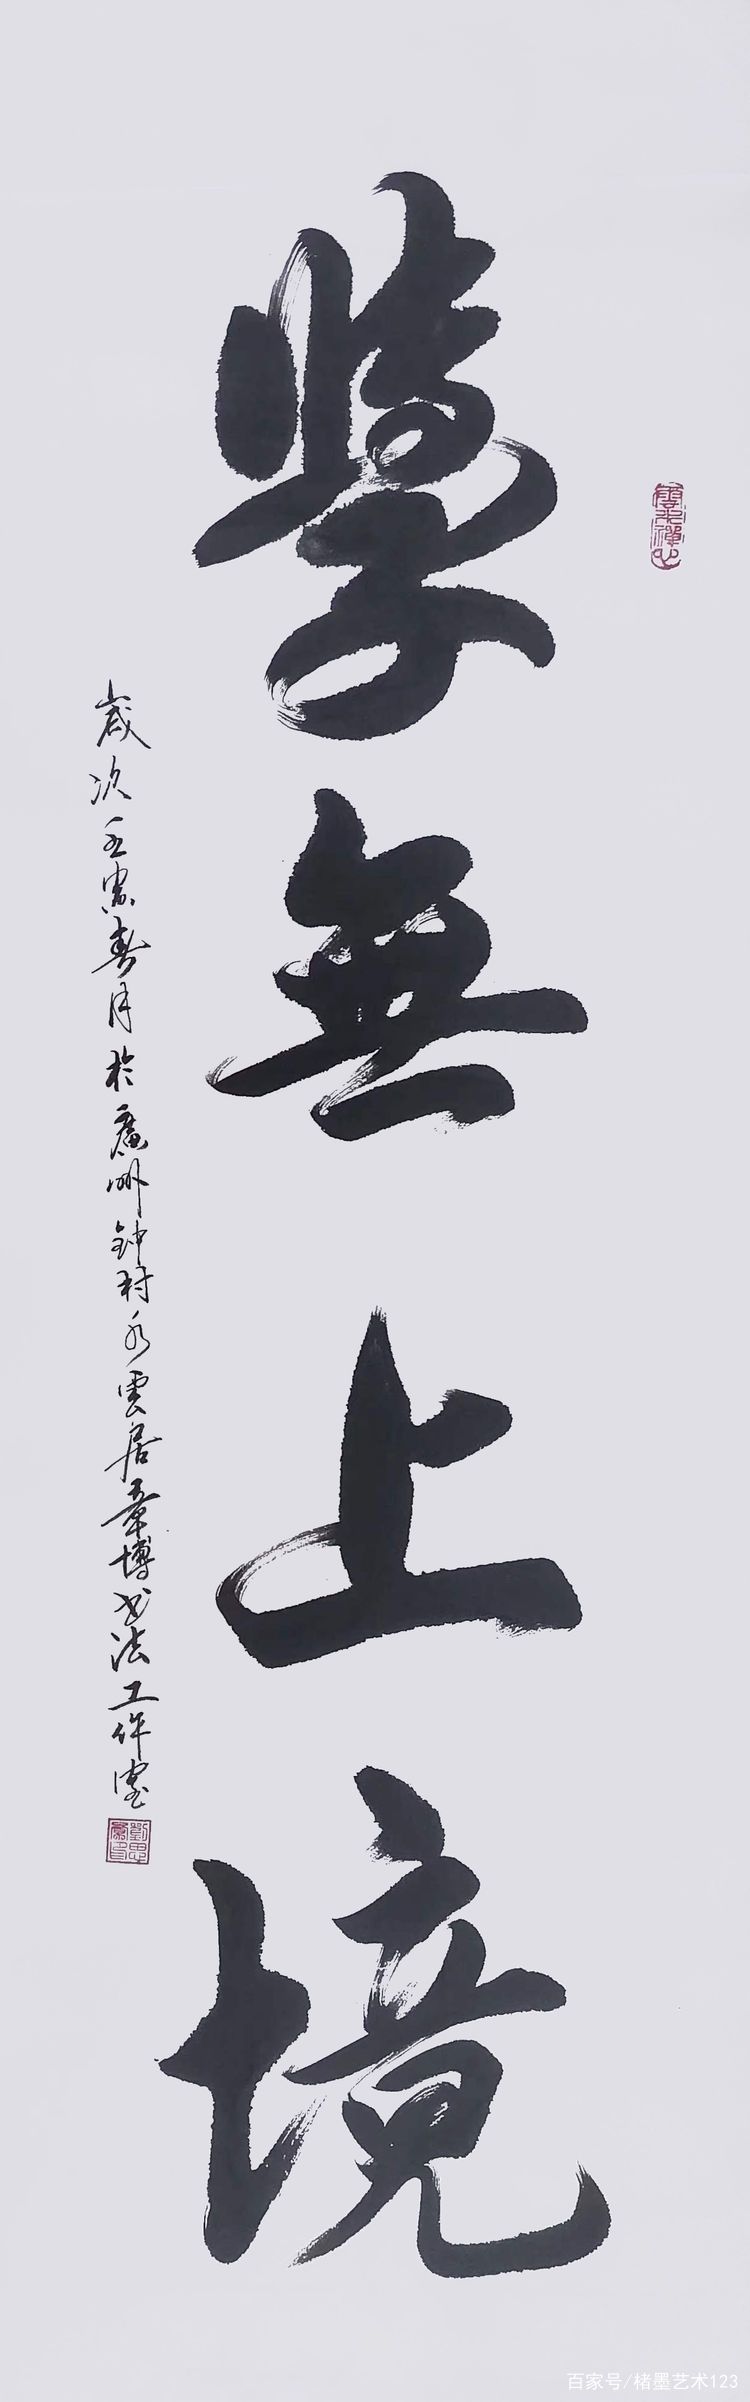 學無上境
歲次壬寅春月於廣州钟村水雲居章博书法工作室
百家号/楮墨艺术123